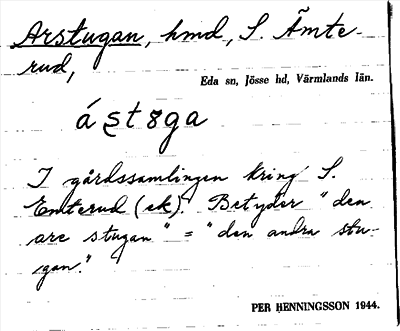 Arstugan, hmd, S. Ämte-
rud,
Eda sn, Jösse hd, Värmlands län.
á şt8ga
I gårdssamlingen kring S.
Emterud (ek). Betyder "den
are stugan" = "den andra stu-
gan."
PER HENNINGSSON 1944.